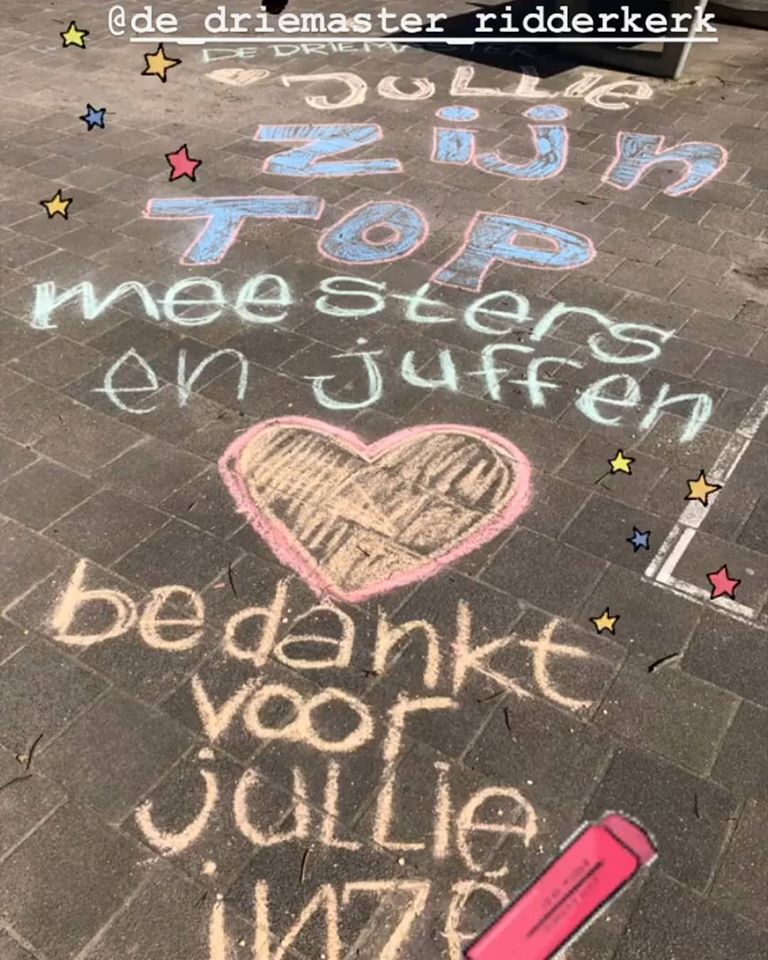 @de_driemaster_ridderkerk
DE DRIEMASTER
JULLIE
zijn
TOP
meesters
en juffen
bedankt
voor
jullie
inze